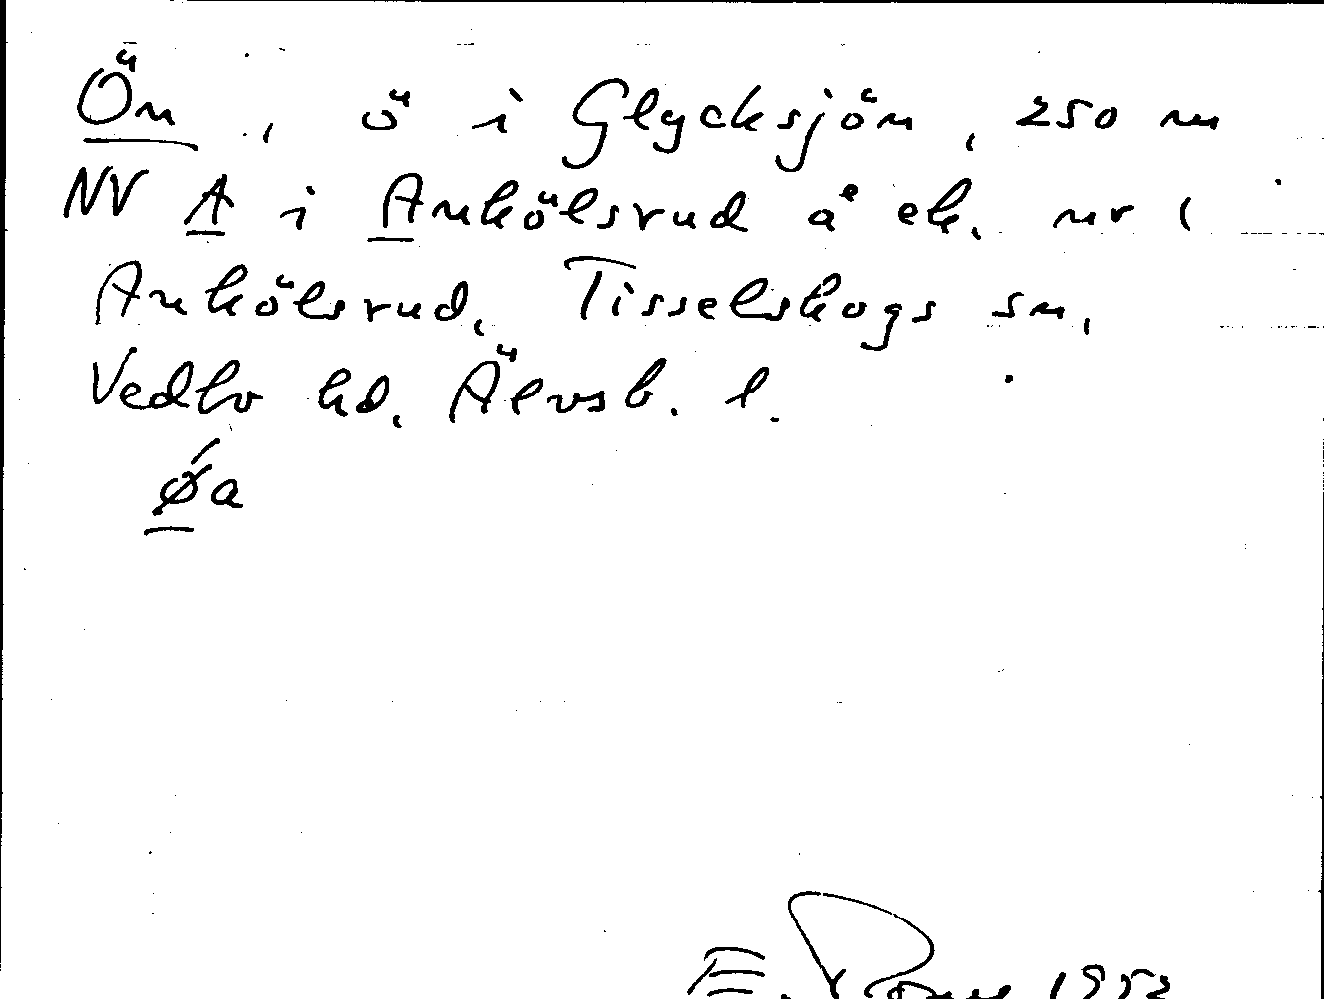 Ön, ö i Glycksjön, 250 m
NV A i Ankölsrud å ek. nr 1
Ankölsrud, Tisselskogs sn,
Vedbo hd, Älvsb. l.
ǿa
E. 1953